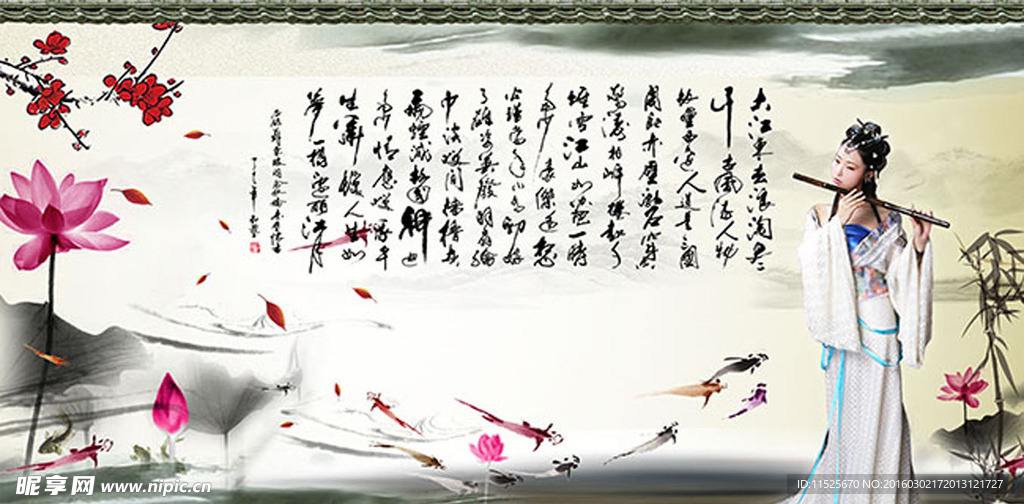 大江東去浪淘尽
千古風流人物
故壘西边人道是三國
周郎赤壁乱石穿空
惊涛拍岸捲起千
堆雪江山如画一時
多少豪傑遥想
公瑾當年小喬初嫁
了雄姿英發羽扇綸
巾談笑間檣櫓灰
飛煙滅故國神遊
多情應笑我早
生華髮人生如
夢一樽還酹江月
昵享网 www.nipic.cn
ID:11525670 NO:20160302172013121727